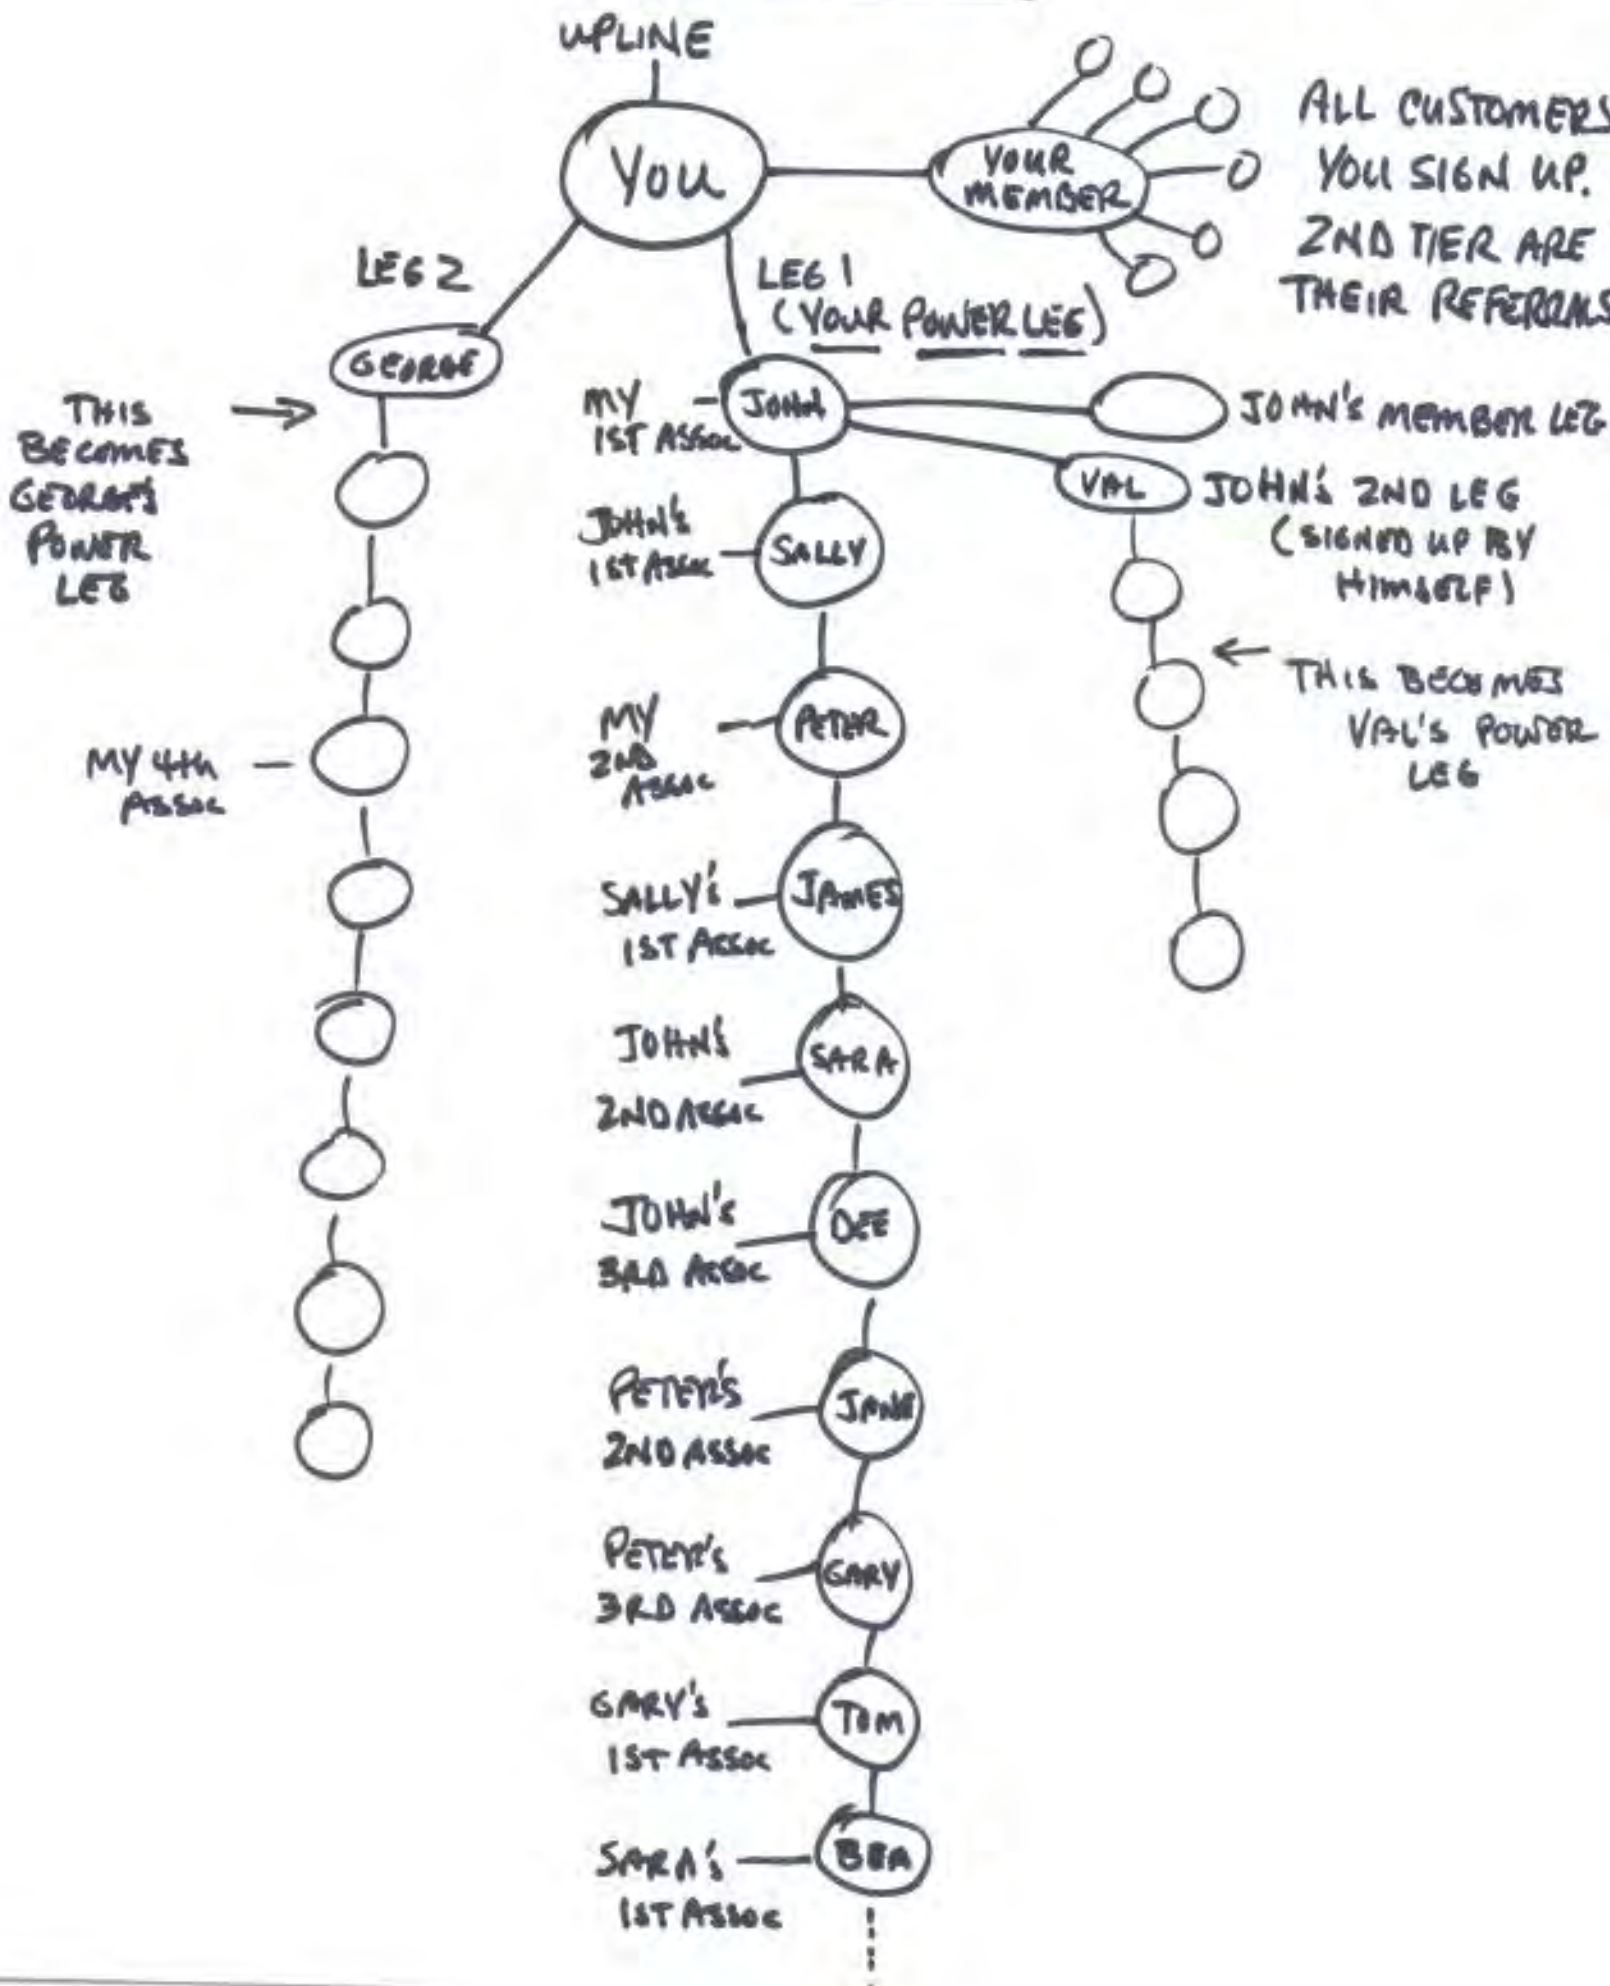 UPLINE
YOU
YOUR
MEMBER
ALL CUSTOMERS
YOU SIGN UP.
2ND TIER ARE
THEIR REFERRALS
LEG 2
LEG 1
(YOUR POWER LEG)
GEORGE
THIS
BECOMES
GEORGE'S
POWER
LEG
MY
1ST ASSOC
JOHN
JOHN'S MEMBER LEG
VAL
JOHN'S 2ND LEG
(SIGNED UP BY
HIMSELF)
JOHN'S
1ST ASSOC
SALLY
THIS BECOMES
VAL'S POWER
LEG
MY
2ND
ASSOC
PETER
MY 4th
ASSOC
SALLY'S
1ST ASSOC
JAMES
JOHN'S
2ND ASSOC
SARA
JOHN'S
3RD ASSOC
DEE
PETER'S
2ND ASSOC
JANE
PETER'S
3RD ASSOC
GARY
GARY'S
1ST ASSOC
TOM
SARA'S
1ST ASSOC
BEA